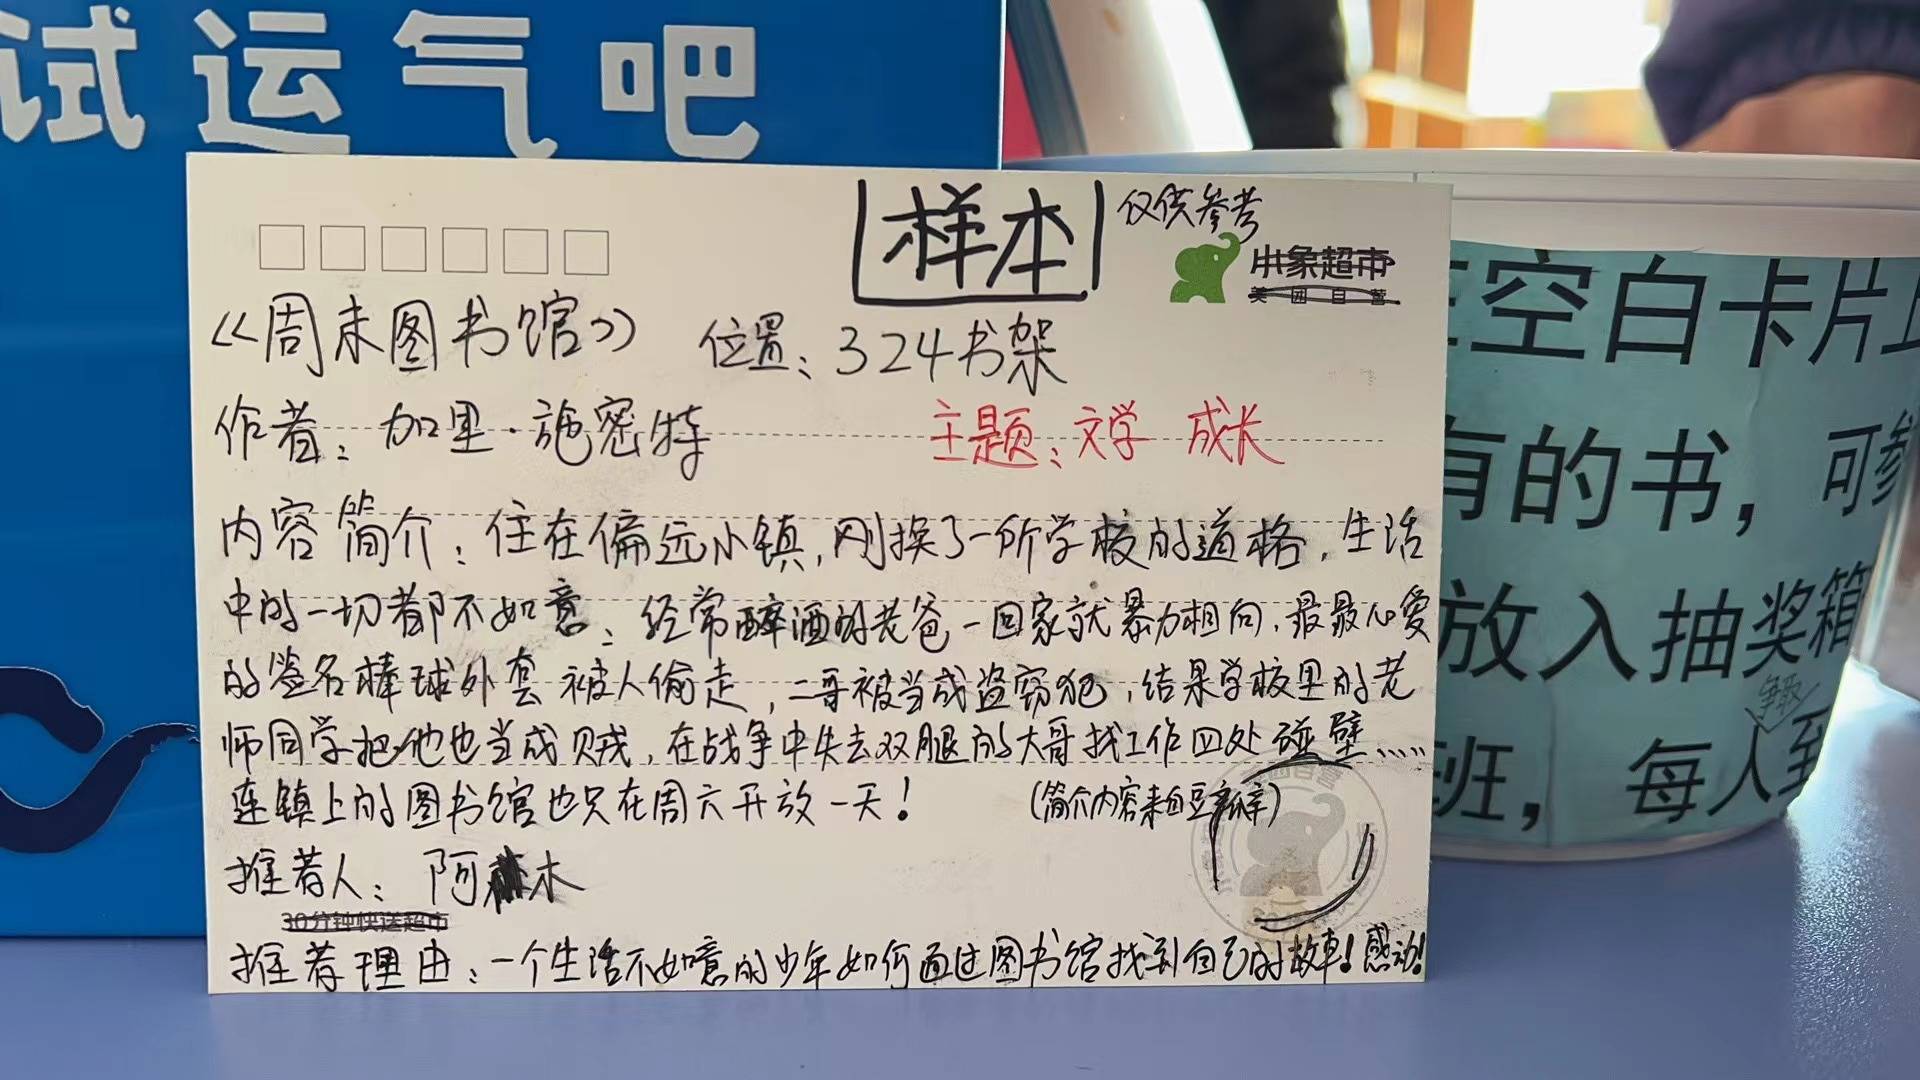 试运气吧
样本
仅供参考
小象超市
美团自营
《周末图书馆》 位置：324书架
作者：加里·施密特 主题：文学 成长
内容简介：住在偏远小镇，刚换了一所学校的道格，生活
中的一切都不如意：经常醉酒的老爸一回家就暴力相向，最最心爱
的签名棒球外套被人偷走，二哥被当成盗窃犯，结果学校里的老
师同学把他也当成贼，在战争中失去双腿的大哥找工作四处碰壁……
连镇上的图书馆也只在周六开放一天！ （简介内容来自豆瓣）
推荐人：阿木
30分钟快送超市
推荐理由：一个生活不如意的少年如何通过图书馆找到自己的故事！感动！
空白卡片上
有的书，可参
放入抽奖箱
争取
班，每人到